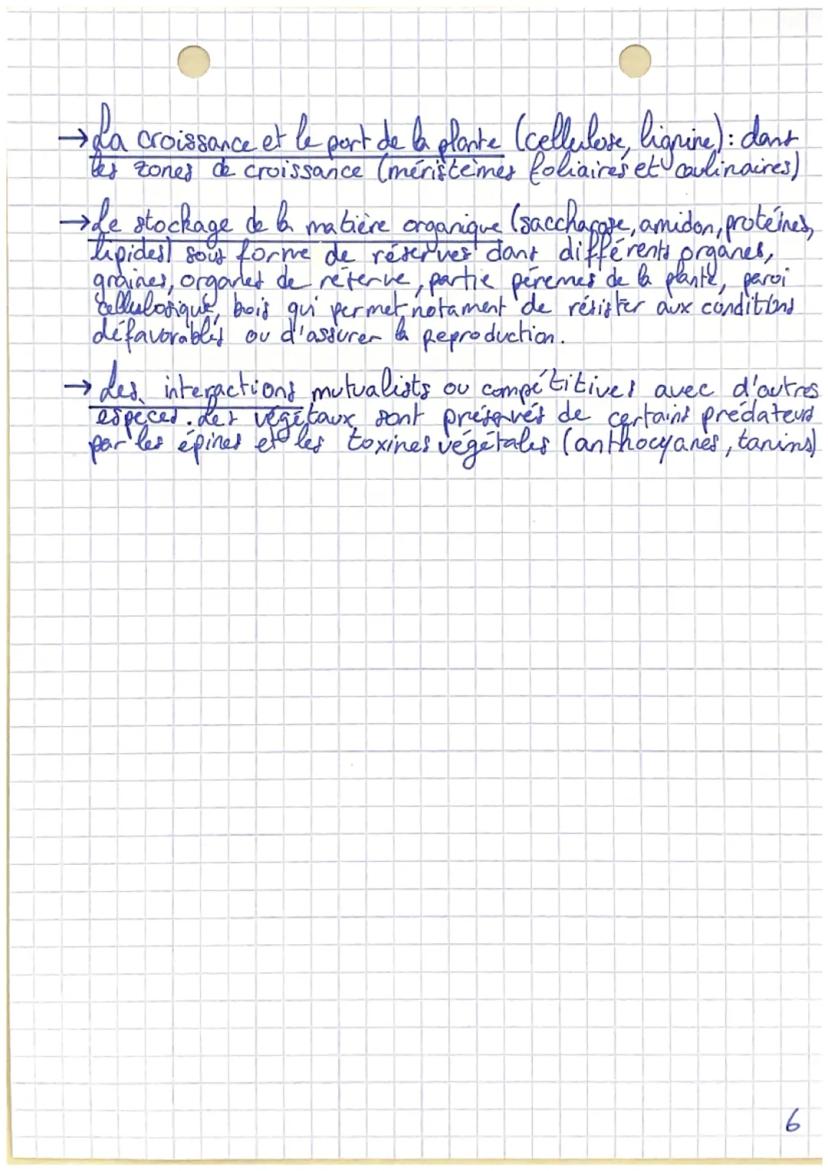 → La croissance et le port de la plante (cellulose, lignine) : dans
les zones de croissance (méristèmes foliaires et caulinaires)
→ Le stockage de la matière organique (saccharose, amidon, protéines,
lipides) sous forme de réserves dans différents organes,
graines, organes de réserve, partie péremes de la plante, paroi
cellulosique, bois qui permet notament de résister aux conditions
défavorables ou d'assurer la reproduction.
→ Les interactions mutualists ou compétitives avec d'autres
espèces. Les végétaux sont préservés de certains prédateurs
par les épines et les toxines végétales (anthocyanes, tanins)
6